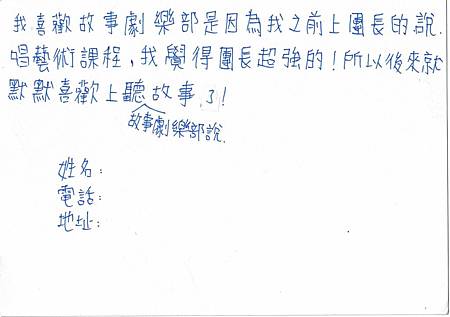 我喜歡故事劇樂部是因為我之前上團長的說.
唱藝術課程,我覺得團長超強的!所以後來就
默默喜歡上聽故事了!
故事劇樂部說.
姓名:
電話:
地址: